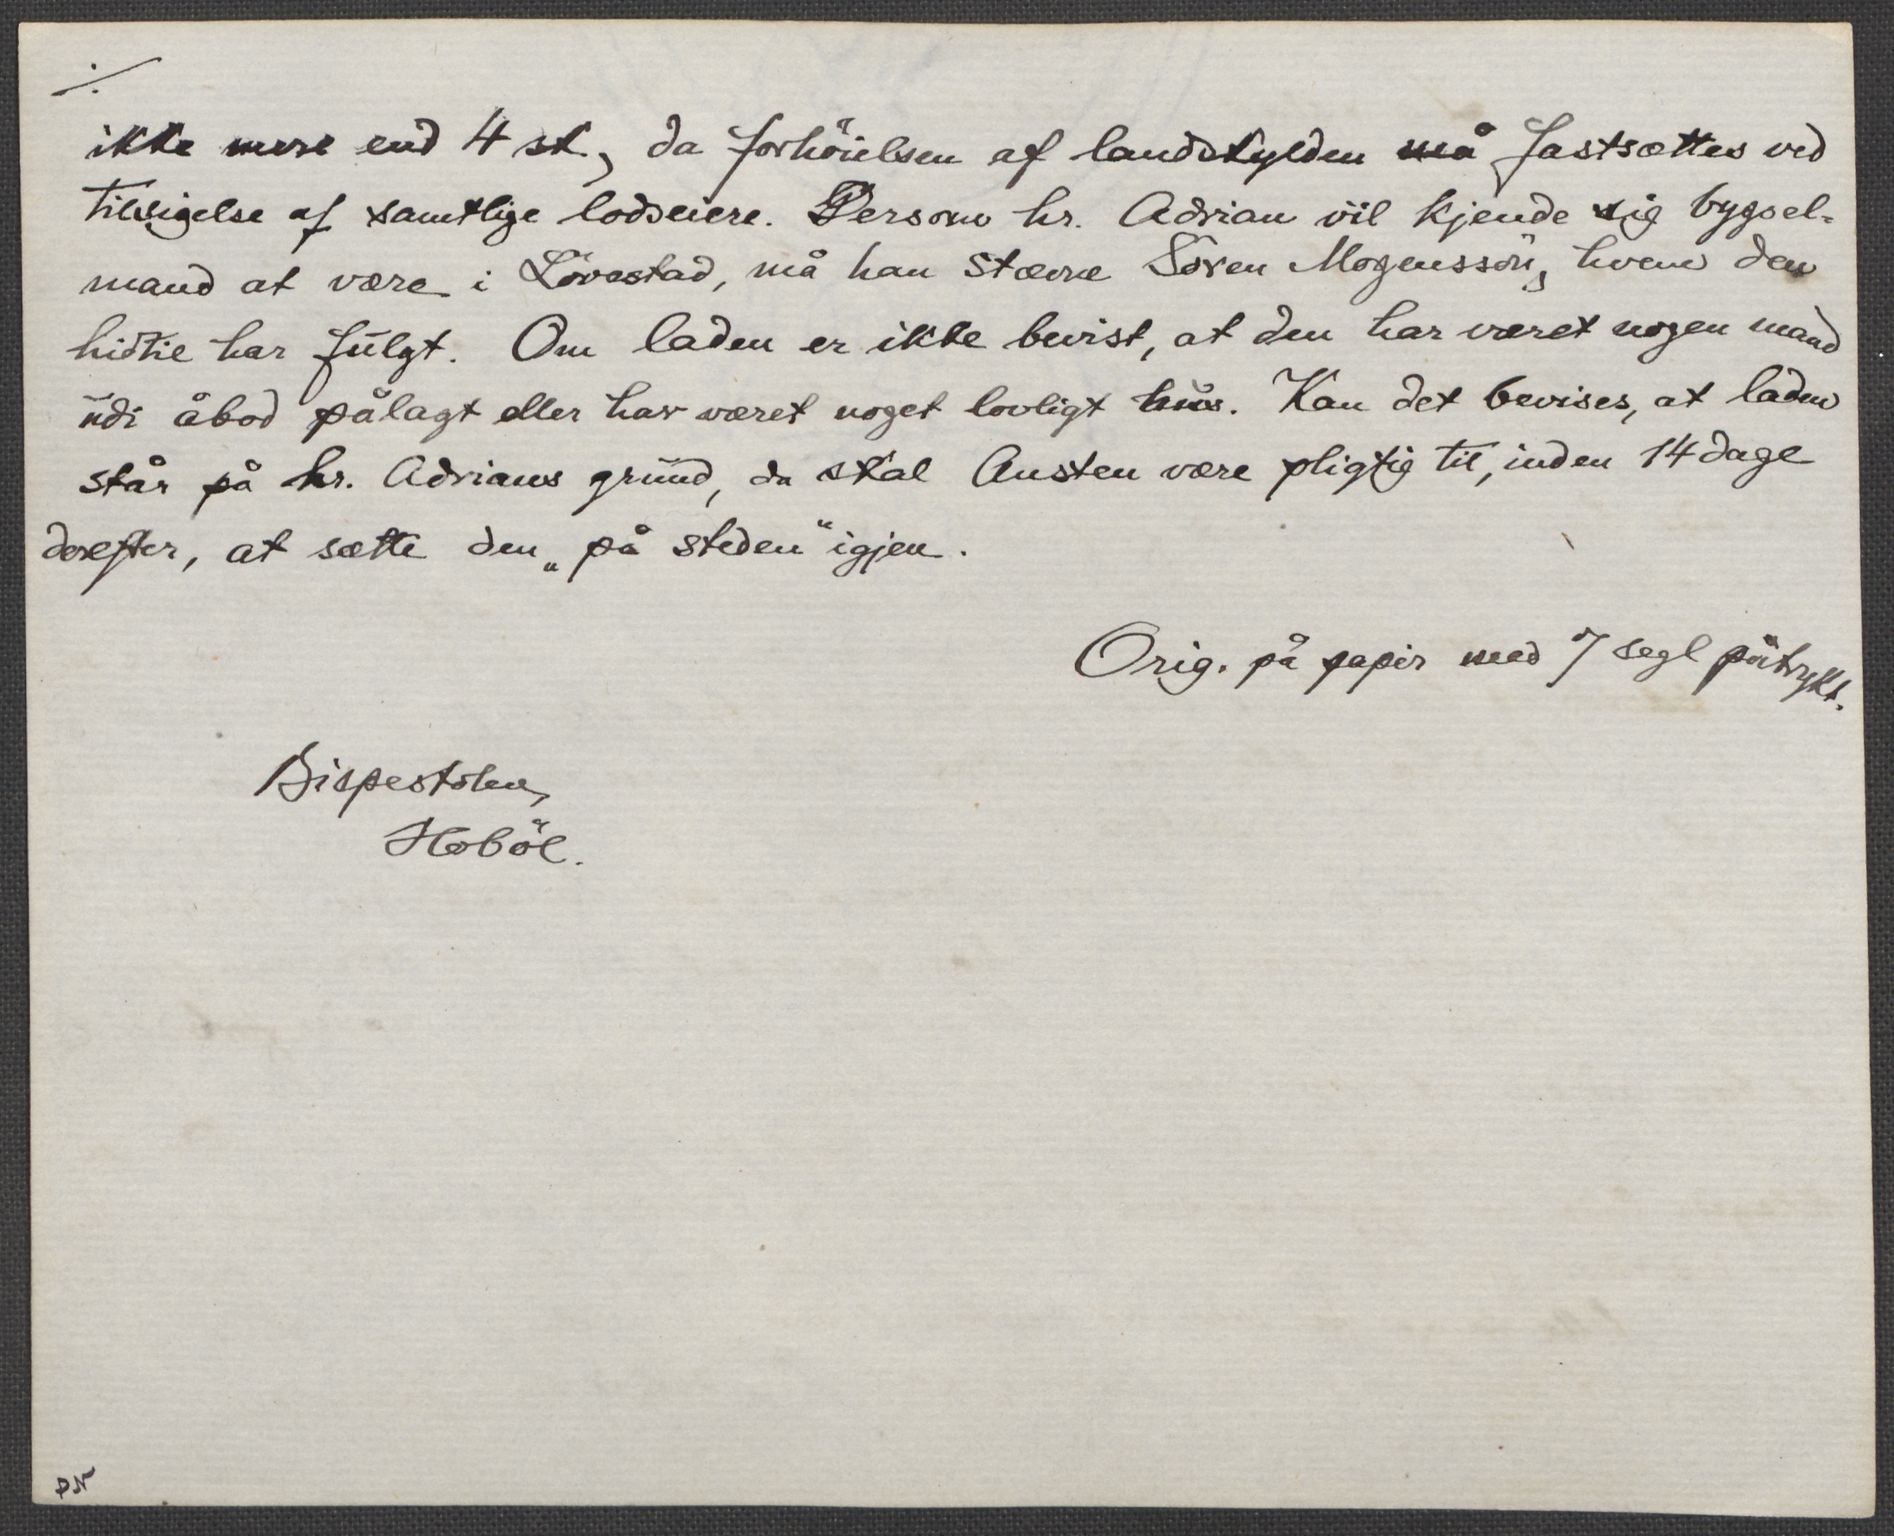 ./.
ikke mere end 4 sk., da forhöielsen af landskylden må fastsættes ved
tilsigelse af samtlige lodseiere. Dersom hr. Adrian vil kjende sig bygsel-
mand at være i Lövestad, må han stævne Sören Mogenssön, hvem den
hidtil har fulgt. Om laden er ikke bevist, at den har været nogen mand
udi åbod pålagt eller har været noget lovligt hus. Kan det bevises, at laden
står på hr. Adrians grund, da skal Austen være pligtig til, inden 14 dage
derefter, at sætte den „på steden“ igjen.
Orig. på papir med 7 segl påtrykt.
Bispestolen,
Haböl.